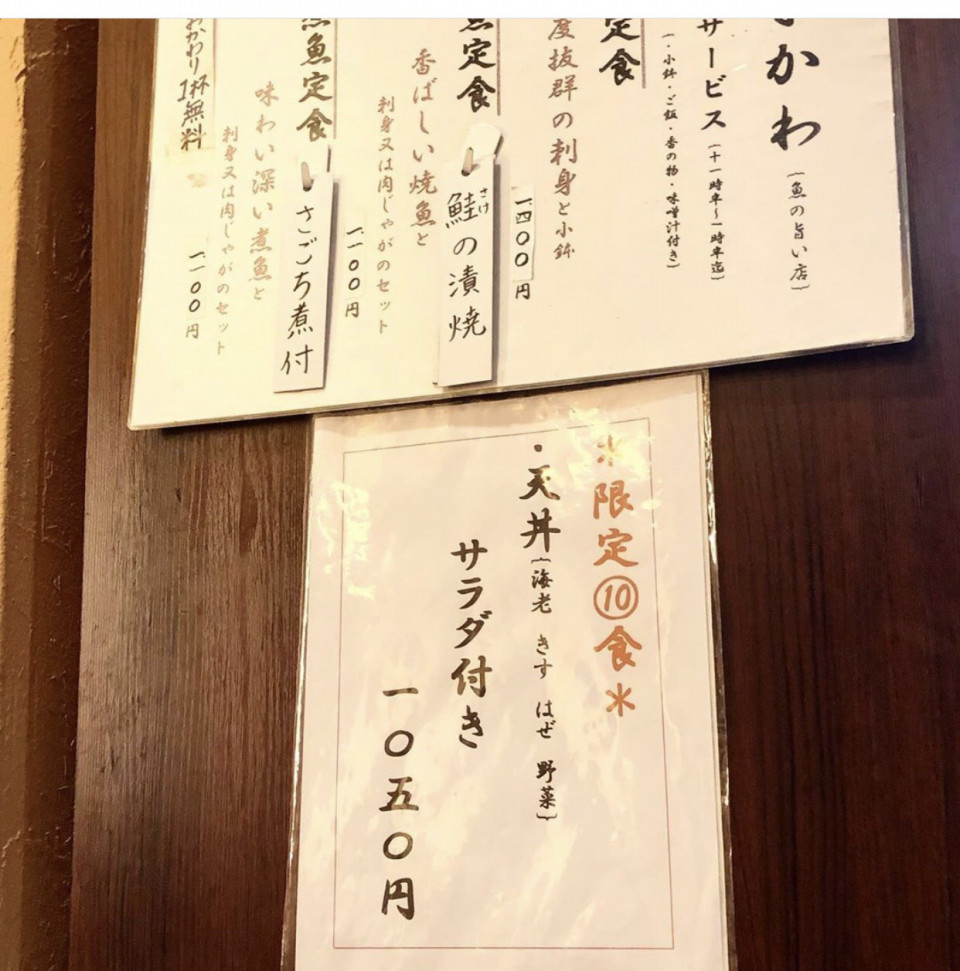 かわ
(魚の旨い店)
サービス(十一時半〜一時半迄)
(・小鉢・ご飯・香の物・味噌汁付き)
定食
度抜群の刺身と小鉢
一四〇〇円
魚定食
鮭の漬焼
さけ
香ばしい焼魚と
刺身又は肉じゃがのセット
一一〇〇円
魚定食
さごち煮付
味わい深い煮魚と
刺身又は肉じゃがのセット
一一〇〇円
おかわり1杯無料
＊限定⑩食＊
・天丼(海老 きす はぜ 野菜)
サラダ付き
一〇五〇円